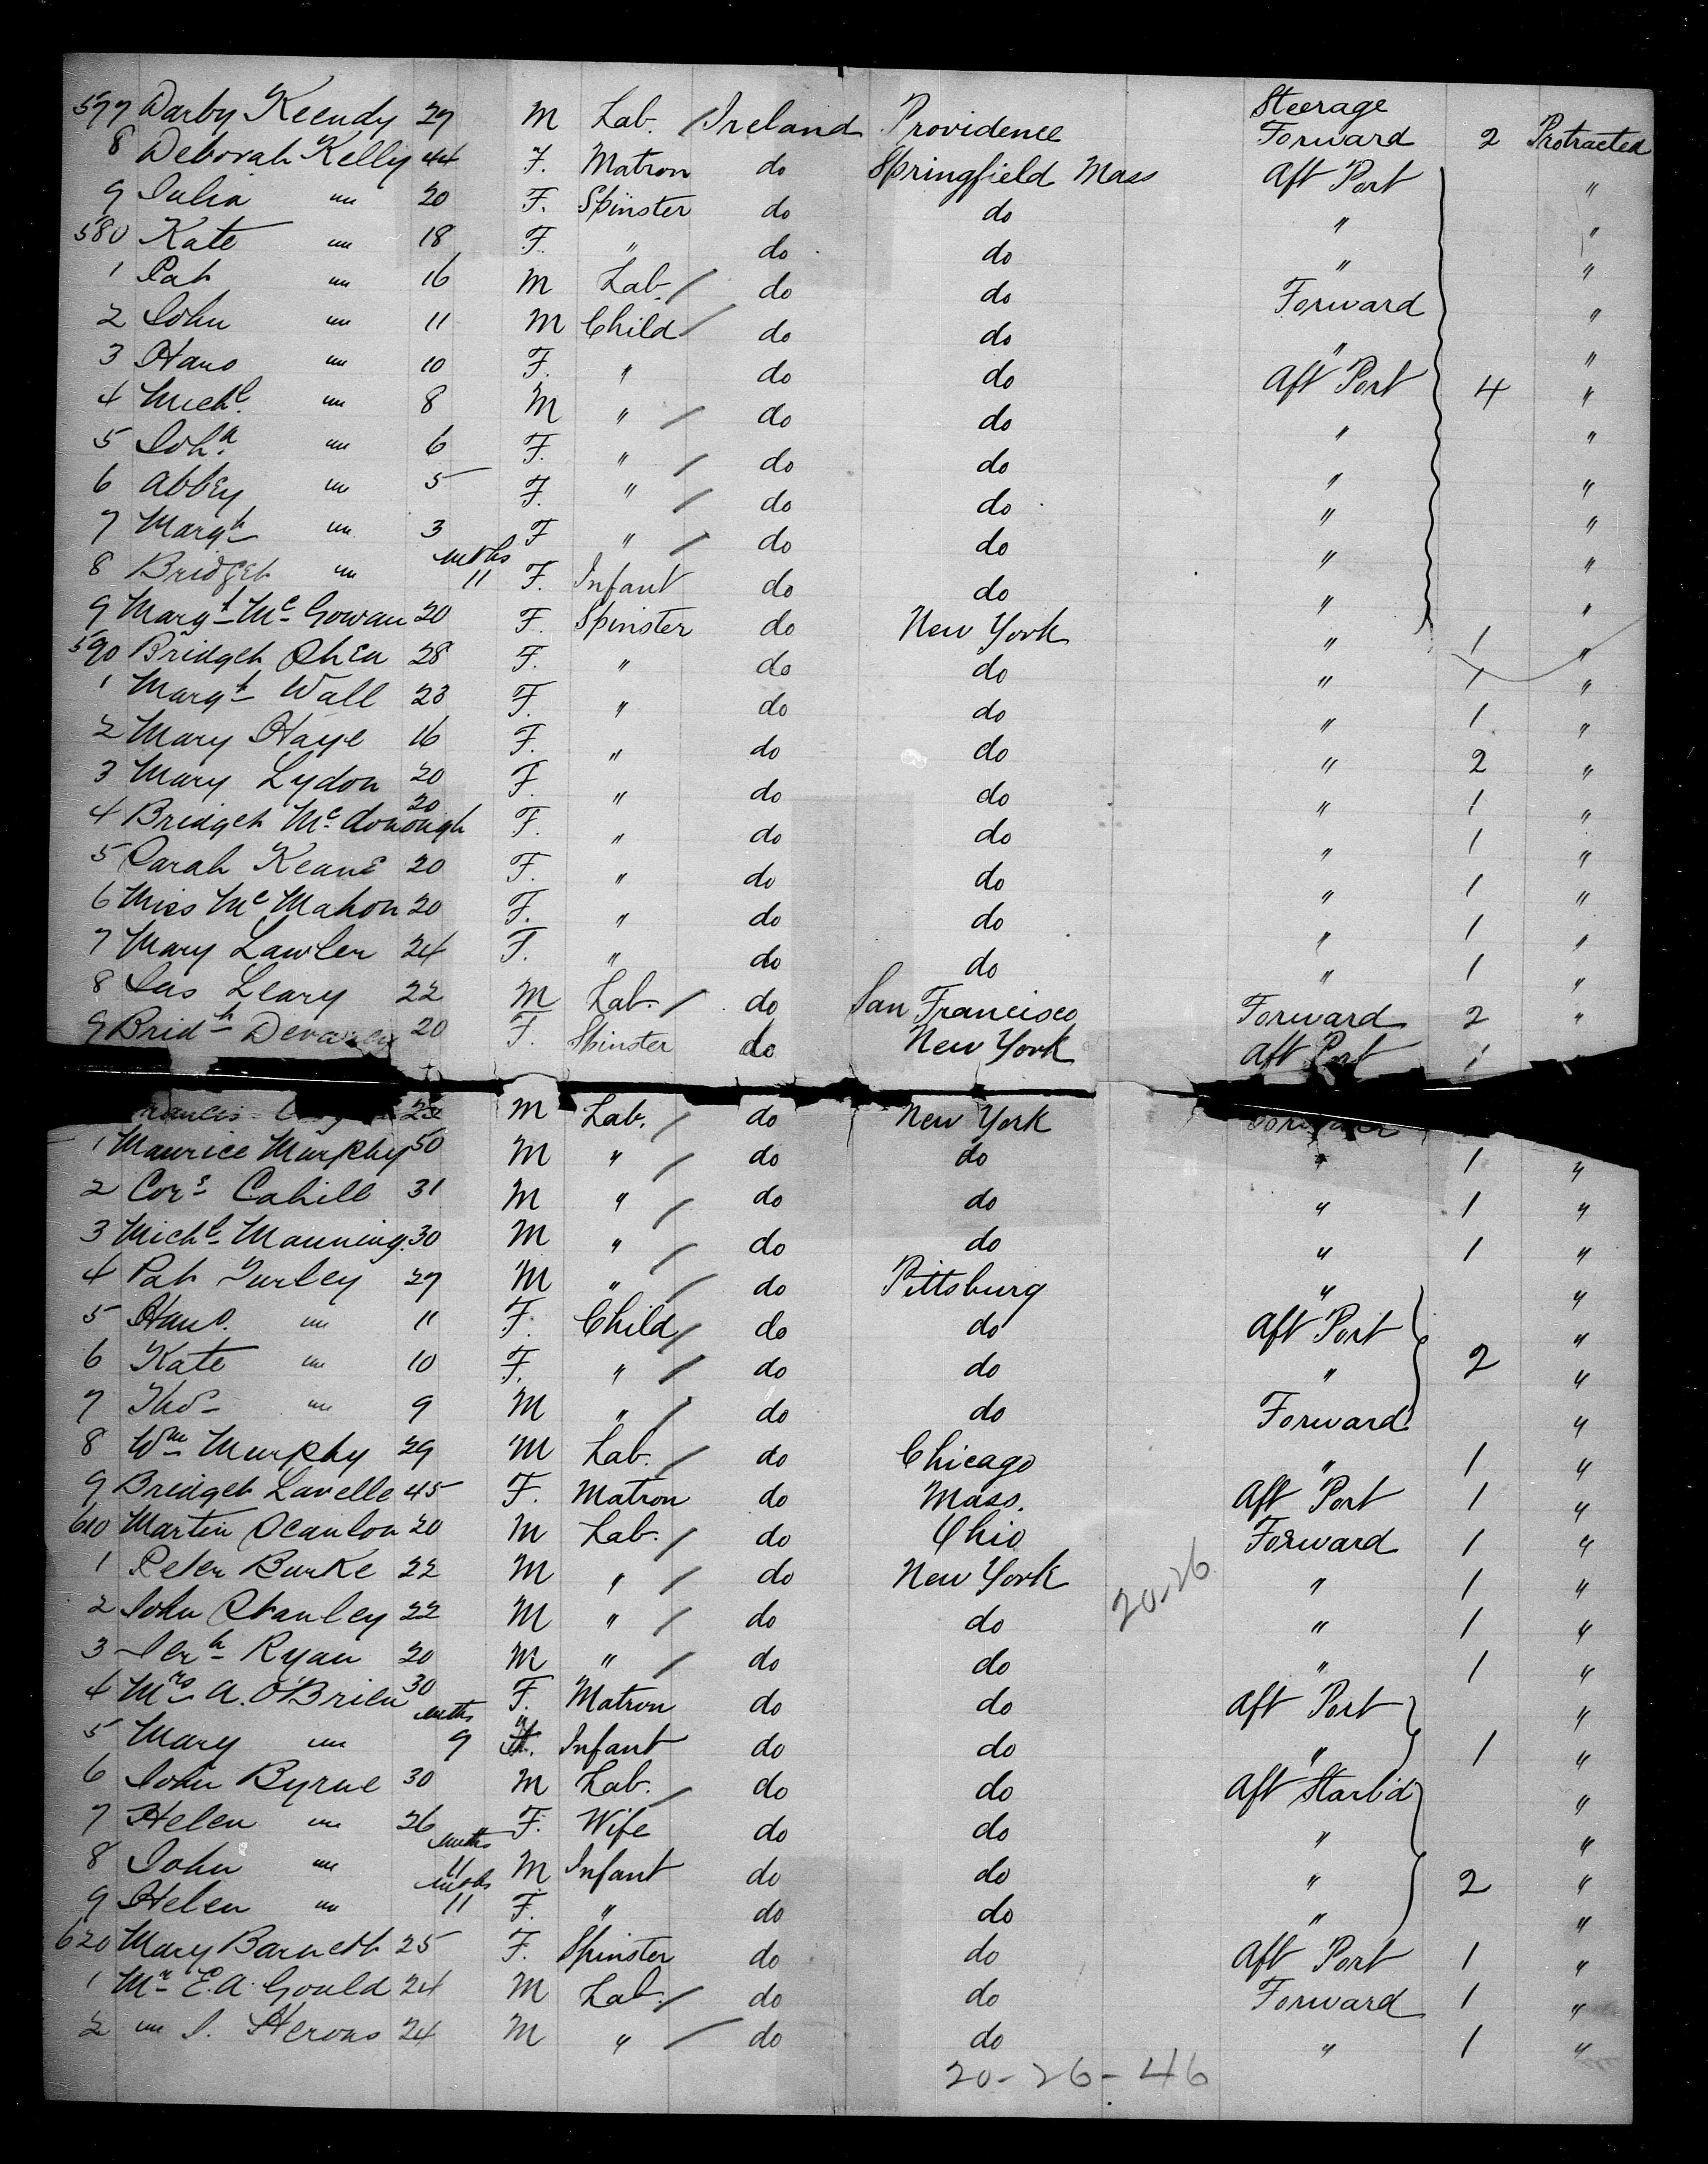 577 Darby Keendy 27 M Lab. / Ireland Providence Steerage Forward 2 Protracted
8 Deborah Kelly 44 F. Matron do Springfield Mass Aft Port "
9 Julia " 20 F. Spinster do do " "
580 Kate " 18 F. " do do " "
1 Pat " 16 M Lab. / do do Forward "
2 John " 11 M Child / do do " "
3 Hano " 10 F. " do do Aft Port 4 "
4 Michl. " 8 M " / do do " "
5 Joha. " 6 F. " / do do " "
6 Abbey " 5 F. " / do do " "
7 Margt " 3 F " / do do " "
8 Bridget " mths 11 F. Infant do do " "
9 Margt Mc Gowan 20 F. Spinster do New York " 1 "
590 Bridget Shea 28 F. " do do " 1 "
1 Margt Wall 23 F. " do do " 1 "
2 Mary Haye 16 F. " do do " 2 "
3 Mary Lydon 20 F. " do do " 1 "
4 Bridget Mc donough 20 F. " do do " 1 "
5 Sarah Keane 20 F. " do do " 1 "
6 Miss Mc Mahon 20 F. " do do " 1 "
7 Mary Lawler 24 F. " do do " 1 "
8 Jas Leary 22 M Lab. / do San Francisco Forward 2 "
9 Bridt 20 F. Spinster do New York Aft Port 1
M Lab. / do New York
1 Maurice Murphy 50 M " / do do " 1 "
2 Cors Cahill 31 M " / do do " 1 "
3 Michl Manning. 30 M " / do do " 1 "
4 Pat Turley 27 M " / do Pittsburg " "
5 Hano. " 11 F. Child / do do Aft Port "
6 Kate " 10 F. " / do do " 2 "
7 Thos " 9 M " / do do Forward "
8 Wm Murphy 29 M Lab. / do Chicago " 1 "
9 Bridget Lavelle 45 F. Matron do Mass. Aft Port 1 "
610 Martin Scanlon 20 M Lab. / do Ohio Forward 1 "
1 Peter Burke 22 M " / do New York 20-26 " 1 "
2 John Stanley 22 M " / do do " 1 "
3 Jerh Ryan 20 M " / do do " 1 "
4 Mrs A. O'Brien 30 F. Matron do do Aft Port "
5 Mary " mths 9 " Infant do do " 1 "
6 John Byrne 30 M Lab. / do do Aft Starb'd "
7 Helen " 26 F. Wife do do " "
8 John " mths 11 M Infant do do " 2 "
9 Helen " mths 11 F. " do do " "
620 Mary Barnett 25 F. Spinster do do Aft Port 1 "
1 Mr E.A. Gould 24 M Lab. / do do Forward 1 "
2 " J. Herons 24 M " / do do " 1 "
20-26-46